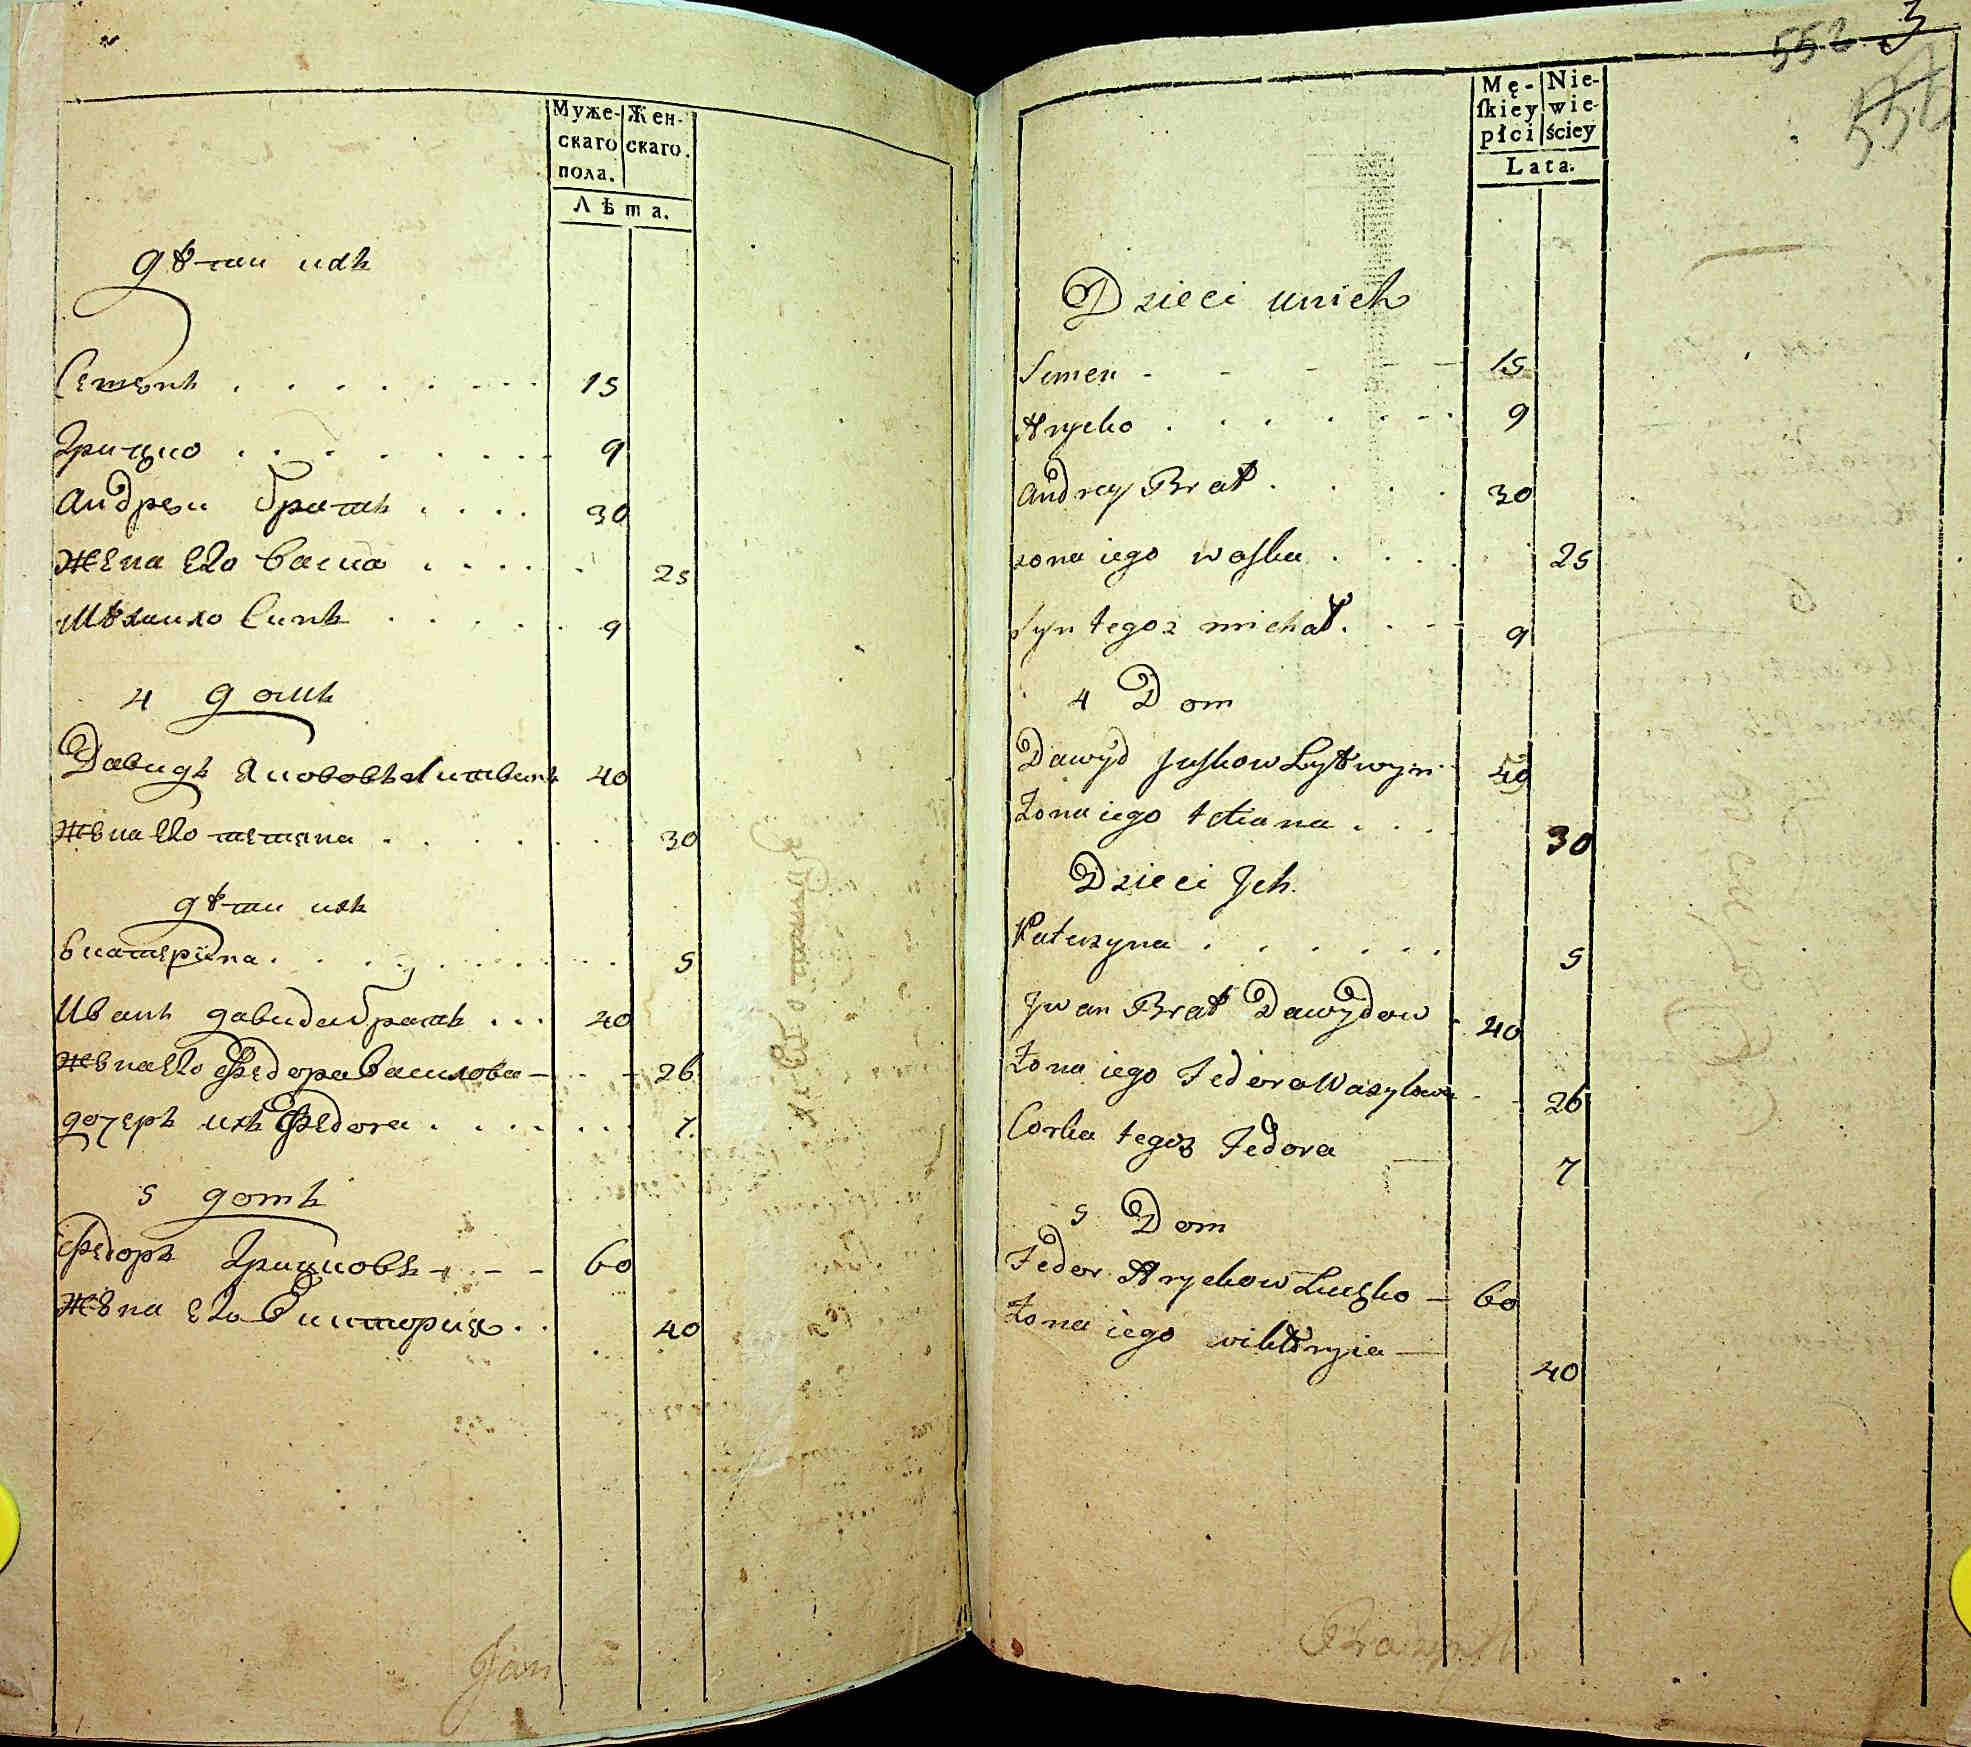 Муже- Жен-
скаго скаго.
пола.
Лѣта.
дѣти ихъ
Семенъ . . . . . . . 15
Грицко . . . . . . . 9
Андреи братъ . . . . 30
жена его Васка . . . . . 25
Михаило Синъ . . . . . 9
4 домъ
Давидъ Яцововъ Литвинъ 40
жена его тетяна . . . . . 30
дѣти ихъ
Екатерина . . . . . . . 5
Иванъ давида братъ . . . 40
жена его Федора Василова 26
дочеръ ихъ Федора . . . . . 7
5 домъ
Федоръ Грицковъ 60
жена его Виктория . . 40
Jan
552 3
Mę- Nie-
ſkiey wie-
płci ściey
Lata.
Dzieci unich
Semen 15
Hrycko . . . . . . 9
Andrey Brat . . . . 30
zona iego Waska . . . . 25
Syn tegoz michał . . 9
4 Dom
Dawyd Juskow Lytwyn 40
Żona iego tetiana . . . 30
Dzieci Jch.
Katerzyna . . . . . . 5
Jwan Brat Dawydow 40
Żona iego Fedora Wasylowa 26
Corka tegoz Fedora 7
5 Dom
Fedor Hryckow Luczko 60
Żona iego wiktoryia 40